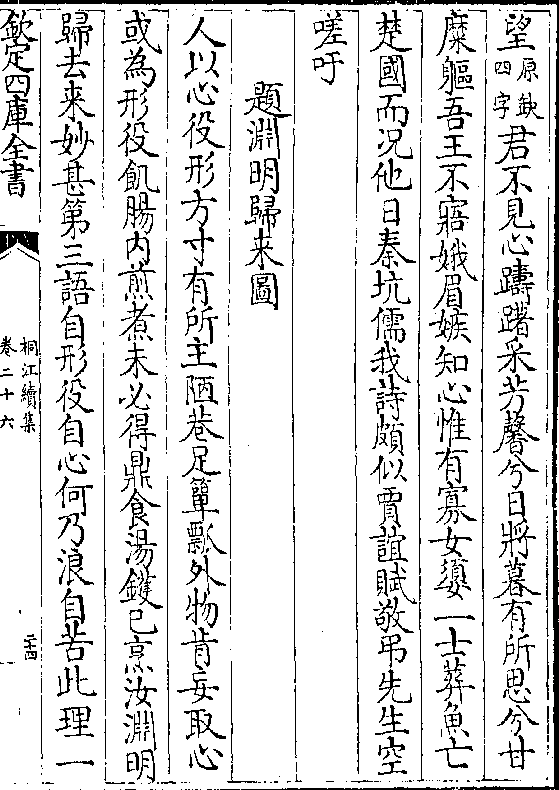 望原缺四字君不見心躊躇采芳馨兮日將暮有所思兮甘
糜軀吾王不寤娥眉嫉知心惟有寡女嬃一士葬魚亡
楚國而況他日秦坑儒我詩頗似賈誼賦敬弔先生空
嗟吁
題淵明歸来圖
人以心役形方寸有所主陋巷足簞瓢外物肯妄取心
或為形役飢腸内煎煮未必得鼎食湯鑊已烹汝淵明
歸去来妙甚第三語自形役自心何乃浪自苦此理一
欽定四庫全書
桐江續集
卷二十六
二十四